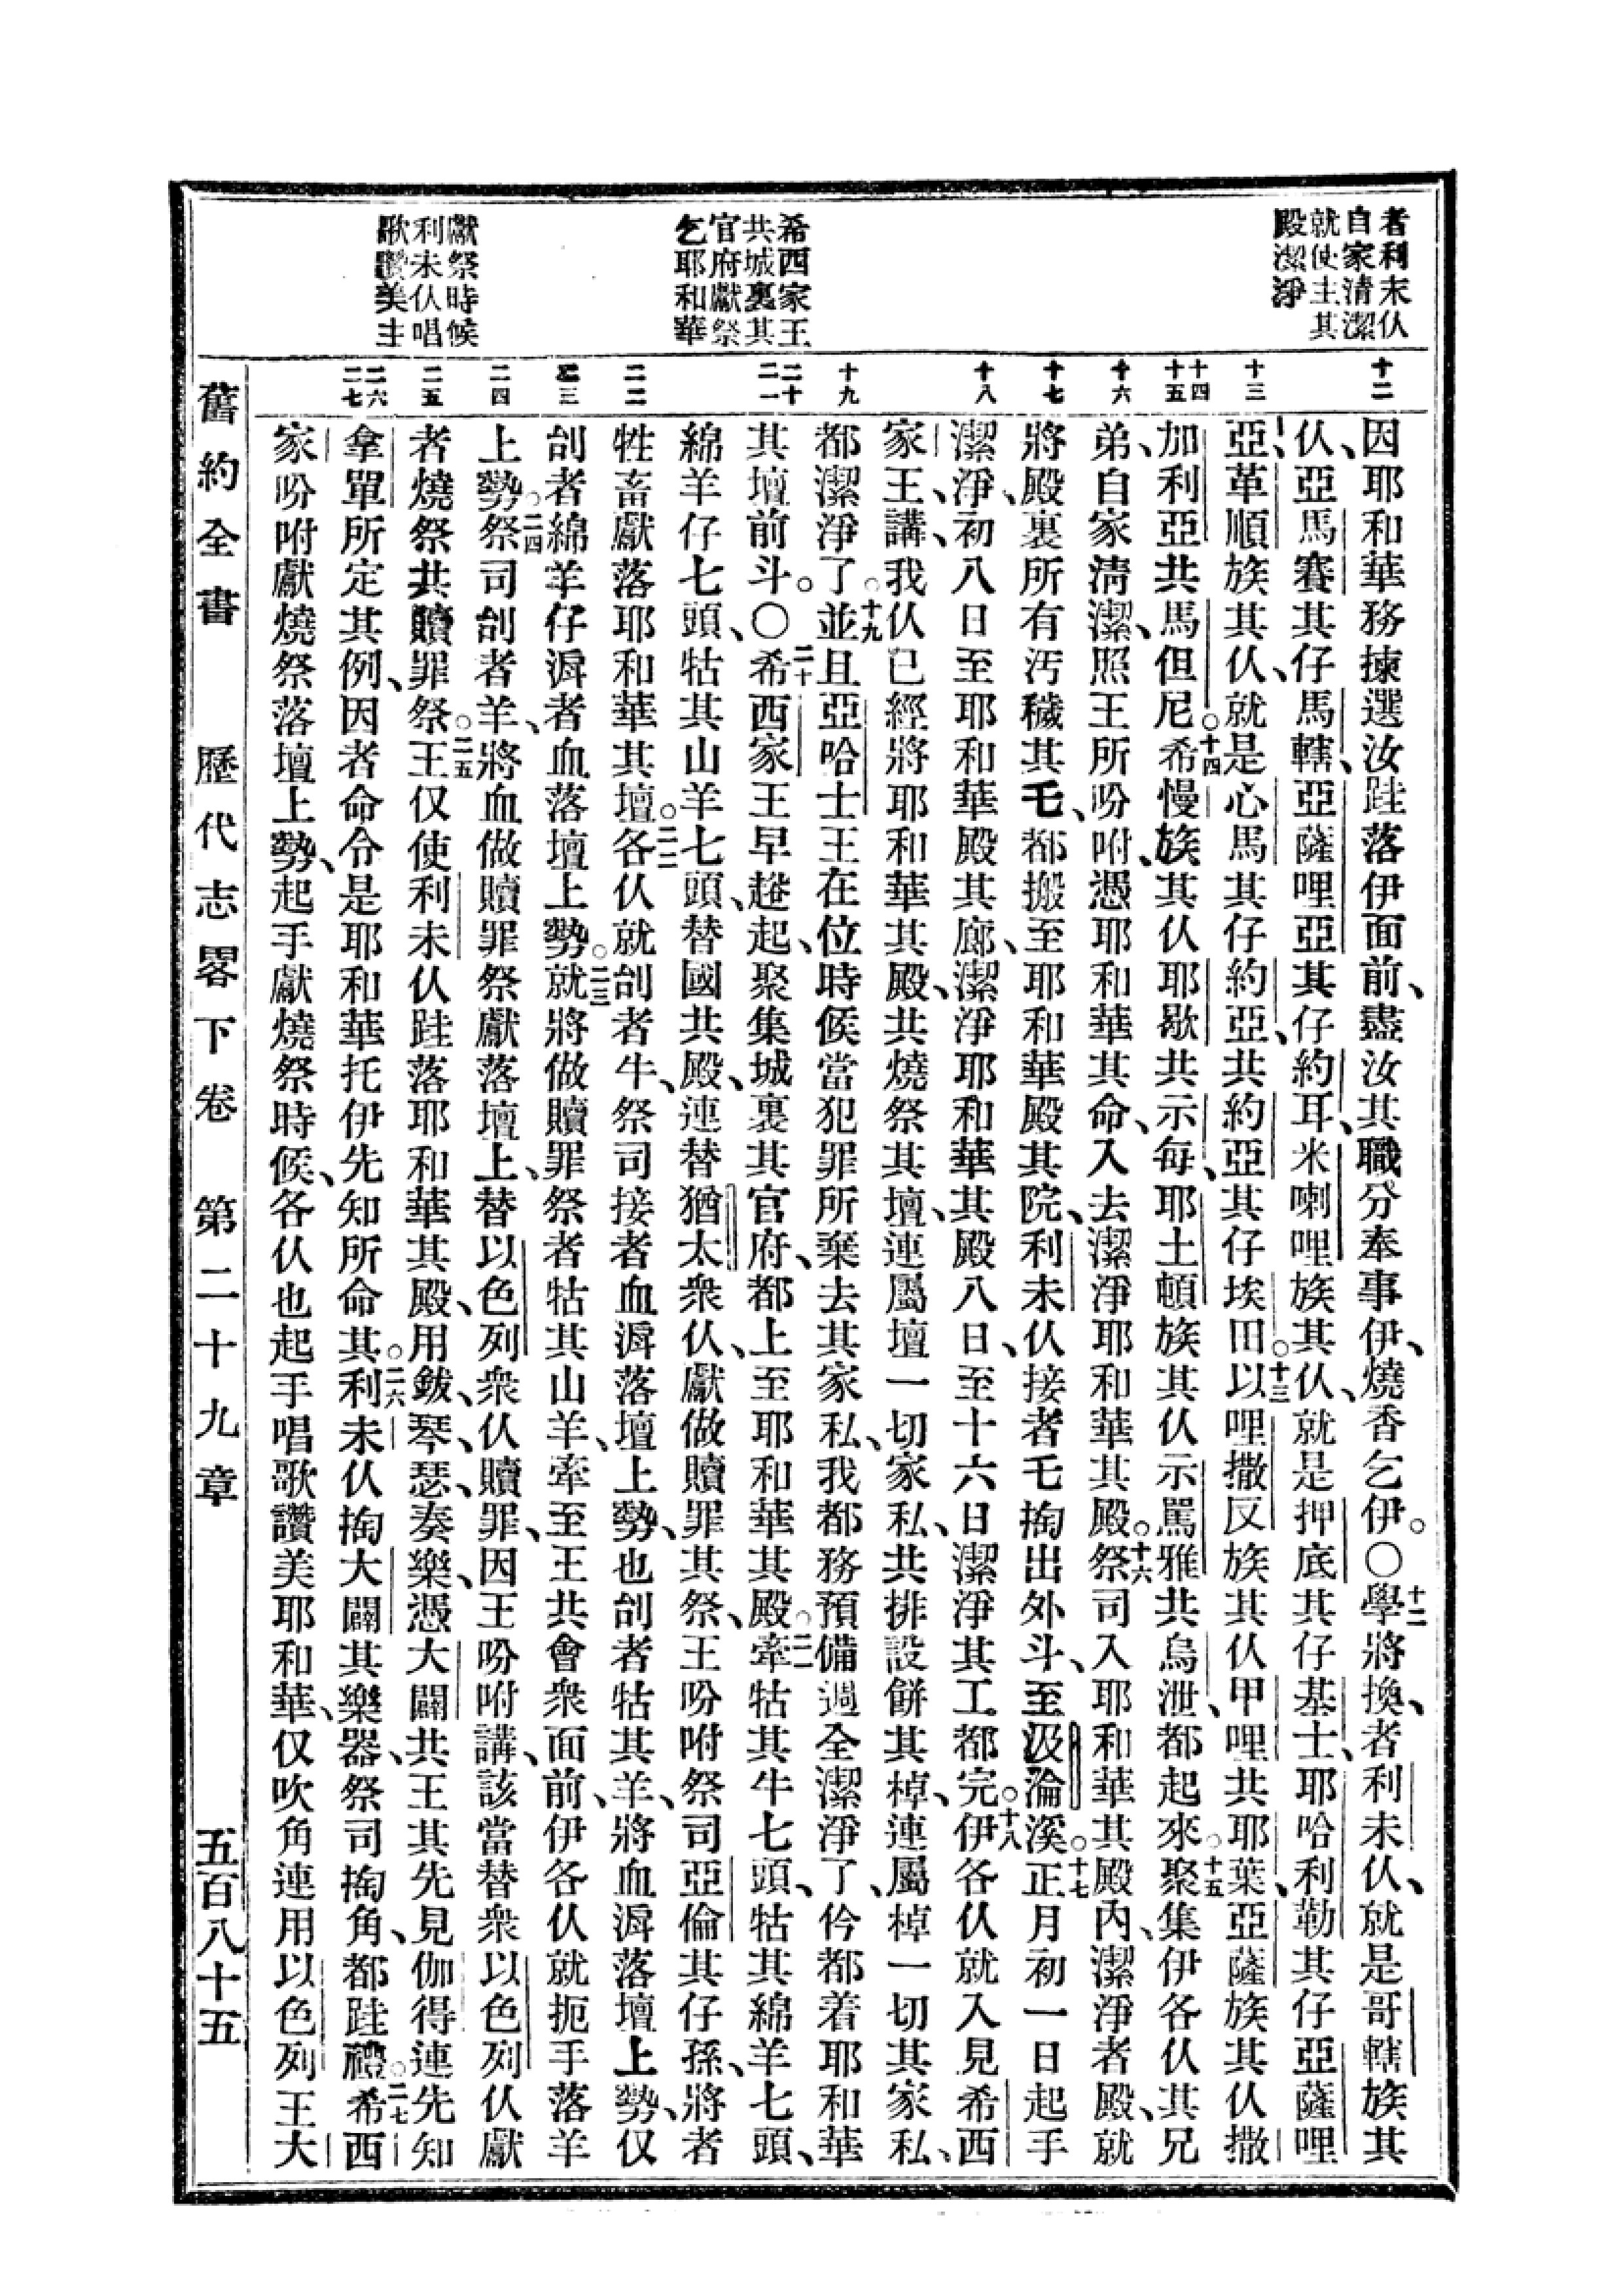 者利未仈
自家清潔
就使主其
殿潔淨
希西家王
共城裏其
官府獻祭
乞耶和華
獻祭時候
利未仈唱
歌讚美主
十二
十三
十四
十五
十六
十七
十八
十九
二十
二一
二二
二三
二四
二五
二六
二七
因耶和華務揀選汝跬落伊面前、盡汝其職分奉事伊、燒香乞伊。〇十二學將換、者利未仈、就是哥轄族其
仈、亞馬賽其仔馬轄、亞薩哩亞其仔約耳、米喇哩族其仈、就是押底其仔基士、耶哈利勒其仔亞薩哩
亞、革順族其仈、就是心馬其仔約亞、共約亞其仔埃田。十三以哩撒反族其仈甲哩共耶葉、亞薩族其仈撒
加利亞共馬但尼。十四希慢族其仈耶歇共示每、耶土頓族其仈示罵雅共烏泄、都起來。十五聚集伊各仈其兄
弟、自家清潔、照王所吩咐、憑耶和華其命、入去潔淨耶和華其殿。十六祭司入耶和華其殿內、潔淨者殿、就
將殿裏所有汚穢其乇、都搬至耶和華殿其院、利未仈接者乇掏出外斗、至汲淪溪。十七正月初一日起手
潔淨、初八日至耶和華殿其廊、潔淨耶和華其殿八日、至十六日潔淨其工都完。十八伊各仈就入見希西
家王、講、我仈已經將耶和華其殿、共燒祭其壇、連屬壇一切家私、共排設餅其棹、連屬棹一切其家私、
都潔淨了。十九並且亞哈士王在位時候當犯罪所棄去其家私、我都務預備過全潔淨了、仱都着耶和華
其壇前斗。〇二十希西家王早趂起、聚集城裏其官府、都上至耶和華其殿。二一牽牯其牛七頭、牯其綿羊七頭、
綿羊仔七頭、牯其山羊七頭、替國共殿、連替猶太衆仈、獻做贖罪其祭、王吩咐祭司亞倫其仔孫、將者
牲畜獻落耶和華其壇。二二各仈就刣者牛、祭司接者血㴘落壇上勢、也刣者牯其羊、將血㴘落壇上勢、仅
刣者綿羊仔㴘者血落壇上勢。二三就將做贖罪祭者牯其山羊、牽至王共會衆面前、伊各仈就扼手落羊
上勢。二四祭司刣者羊、將血做贖罪祭獻落壇上、替以色列衆仈贖罪、因王吩咐講、該當替衆以色列仈獻
者燒祭共贖罪祭。二五王仅使利未仈跬落耶和華其殿、用鈸、琴、瑟、奏樂、憑大闢共王其先見伽得連先知
拿單所定其例、因者命令是耶和華托伊先知所命其。二六利未仈掏大闢其樂器、祭司掏角、都跬禮。二七希西
家吩咐獻燒祭落壇上勢、起手獻燒祭時候、各仈也起手唱歌讚美耶和華、仅吹角連用以色列王大
舊約全書　歷代志畧下卷　第二十九章　五百八十五